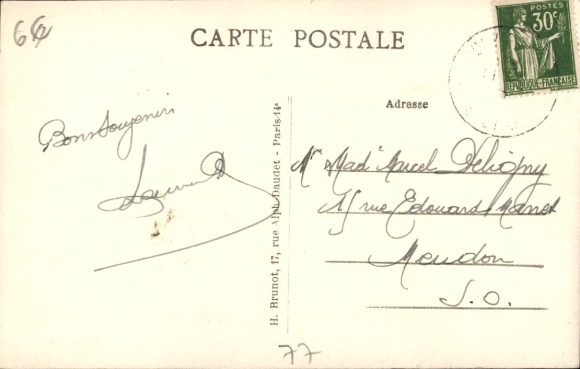 64
CARTE POSTALE
POSTES
30c
REPUBLIQUE-FRANÇAISE
Adresse
Bons Souvenirs
Mr Mad' Marcel Deligny
15 rue Edouard Manet
Meudon
S.O.
H. Brunot, 17, rue Alph. Daudet - Paris-14e
77